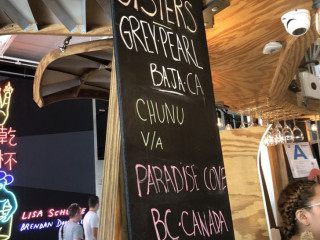 SISTERS
GREYPEARL
BAJA-CA
CHUNU
V/A
PARADISE COVE
BC-CANADA
乾
杯
LISA SCH
BRENDAN DO
A